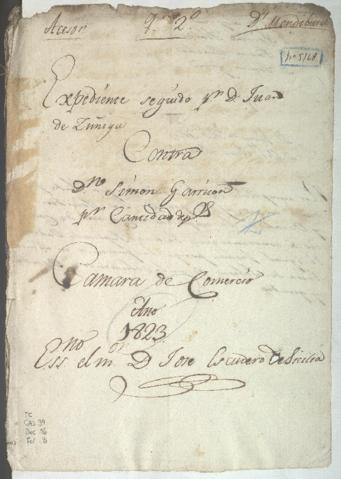 Acesor Q.no 2.o Dr Mendiburu
Expediente seguido pr D. Juan
de Zuñiga
Contra
Dno Simon Garrison
pr Cantidad de ps
Camara de Comercio
Año
1823
Essno el mo D Jose Escudero de Sicilia
TC
Doc 16
Fol 8